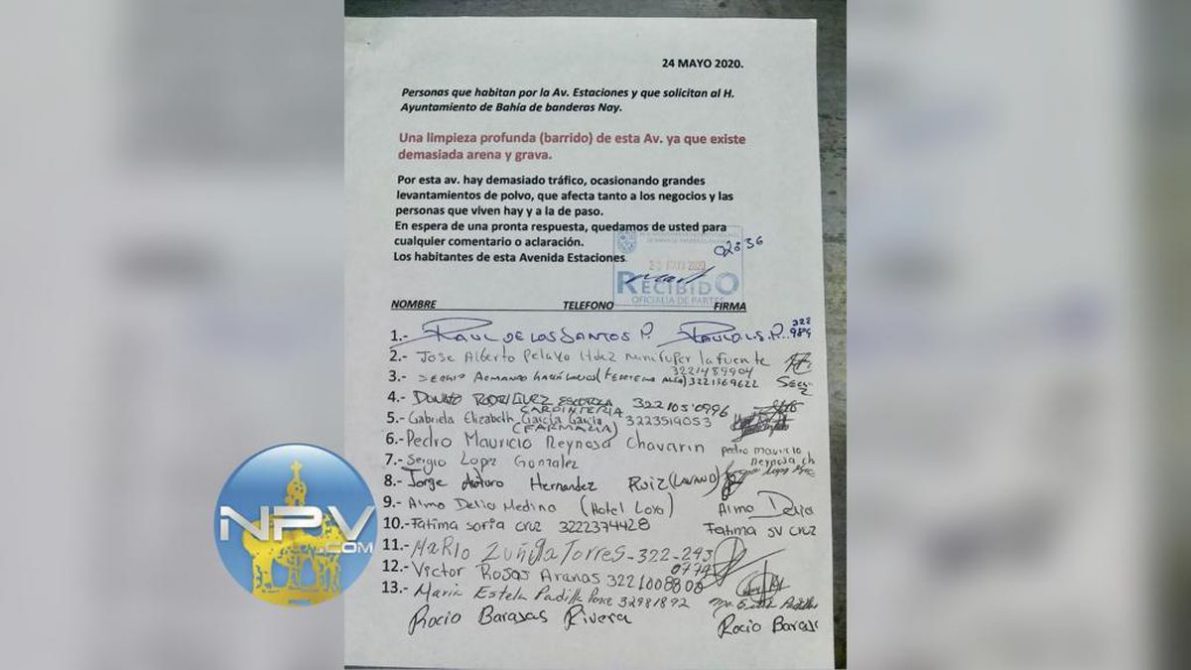 24 MAYO 2020.
Personas que habitan por la Av. Estaciones y que solicitan al H.
Ayuntamiento de Bahía de banderas Nay.
Una limpieza profunda (barrido) de esta Av. ya que existe
demasiada arena y grava.
Por esta av. hay demasiado tráfico, ocasionando grandes
levantamientos de polvo, que afecta tanto a los negocios y las
personas que viven hay y a la de paso.
En espera de una pronta respuesta, quedamos de usted para
cualquier comentario o aclaración.
Los habitantes de esta Avenida Estaciones
02336
RECIBIDO
OFICIALIA DE PARTES
NOMBRE TELEFONO FIRMA
1.- RAUL DE LOS SANTOS P. 322
2.- Jose Alberto Pelayo Hdez minisuper la fuente
3.- SERGIO ARMANDO 3221489904
3221369622
4.- DONATO RODRIGUEZ 3221050996
CARPINTERIA
5.- Gabriela Elizabeth García García 3223519053
(FARMACIA)
6.- Pedro Mauricio Reynosa Chavarin pedro mauricio
reynosa ch
7.- Sergio Lopez Gonzalez
8.- Jorge Arturo Hernandez Ruiz (LAVADO)
9.- Alma Delia Medina (Hotel Loro) Alma Delia
10.- Fatima soria cruz 3222374428 Fatima SV CRUZ
11.- MaRIO ZUÑIGa TORRES - 322-293
0774
12.- Victor Rosas Arenas 3221008808
13.- Maria Estela Padilla Ponce 32981892
Rocio Barajas Rivera Rocio Baraj
NPV
.COM